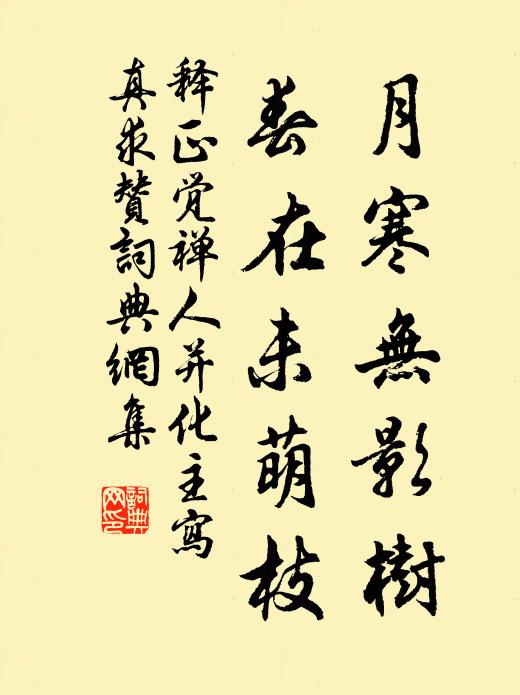 月寒無影樹
春在未萌枝
释正觉禅人并化主寫
真求賛詞典網集
詞典網印